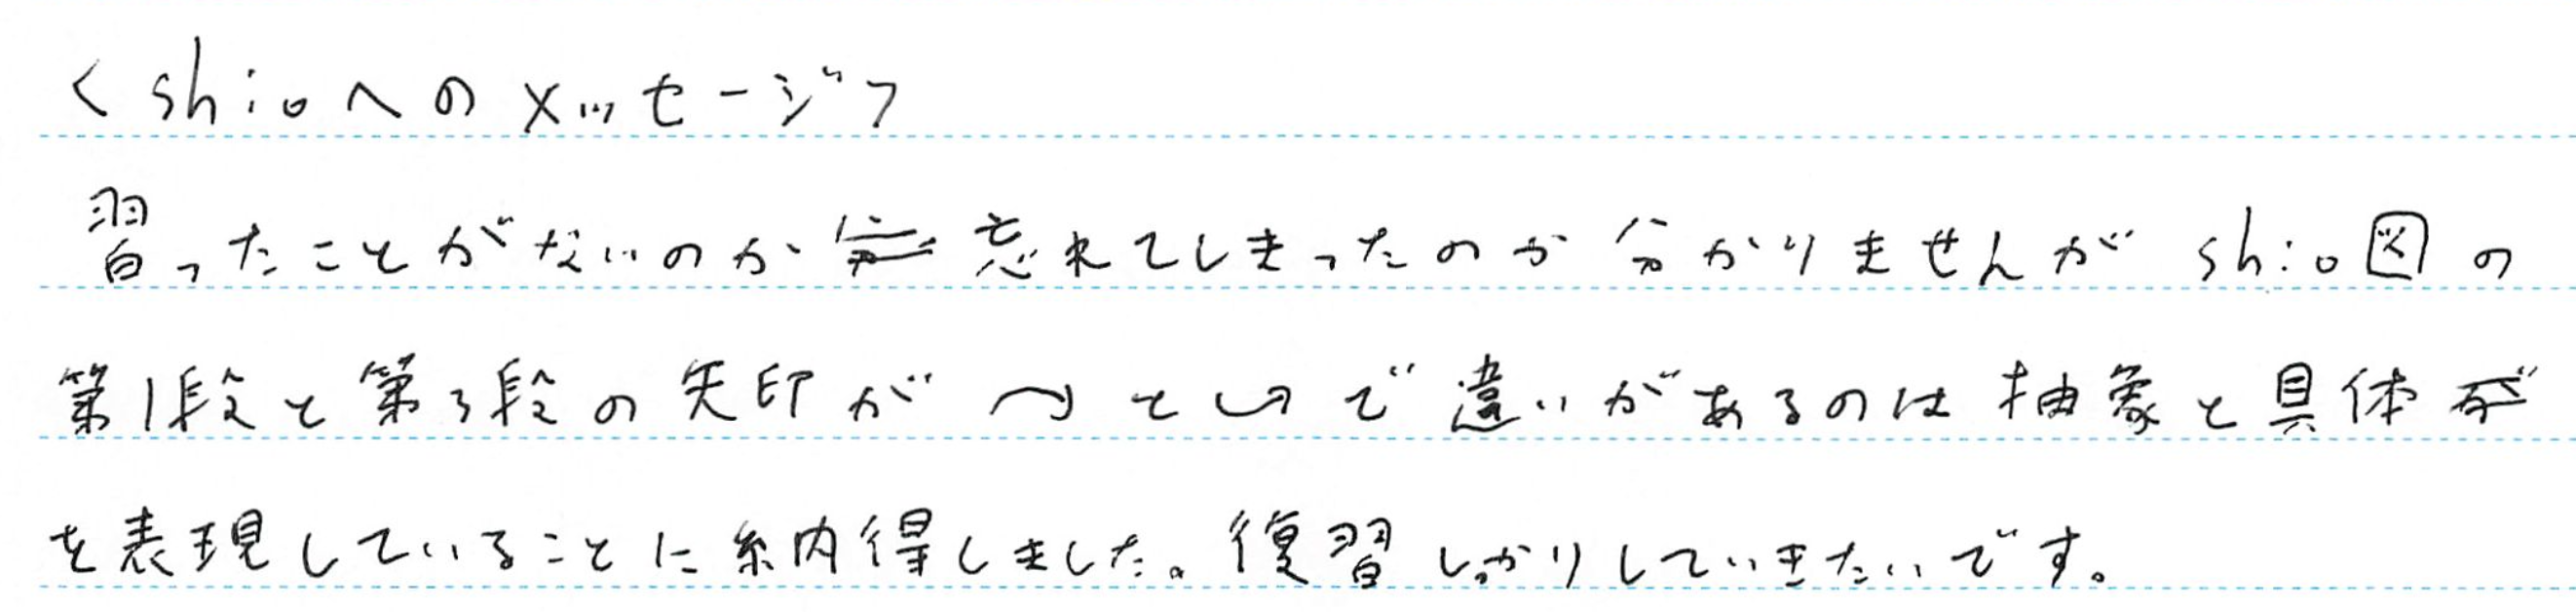 <shioへのメッセージ>
習ったことがないのか忘れてしまったのか分かりませんがshio図の
第1段と第3段の矢印が⤵と⤴で違いがあるのは抽象と具体
を表現していることに納得しました。復習しっかりしていきたいです。